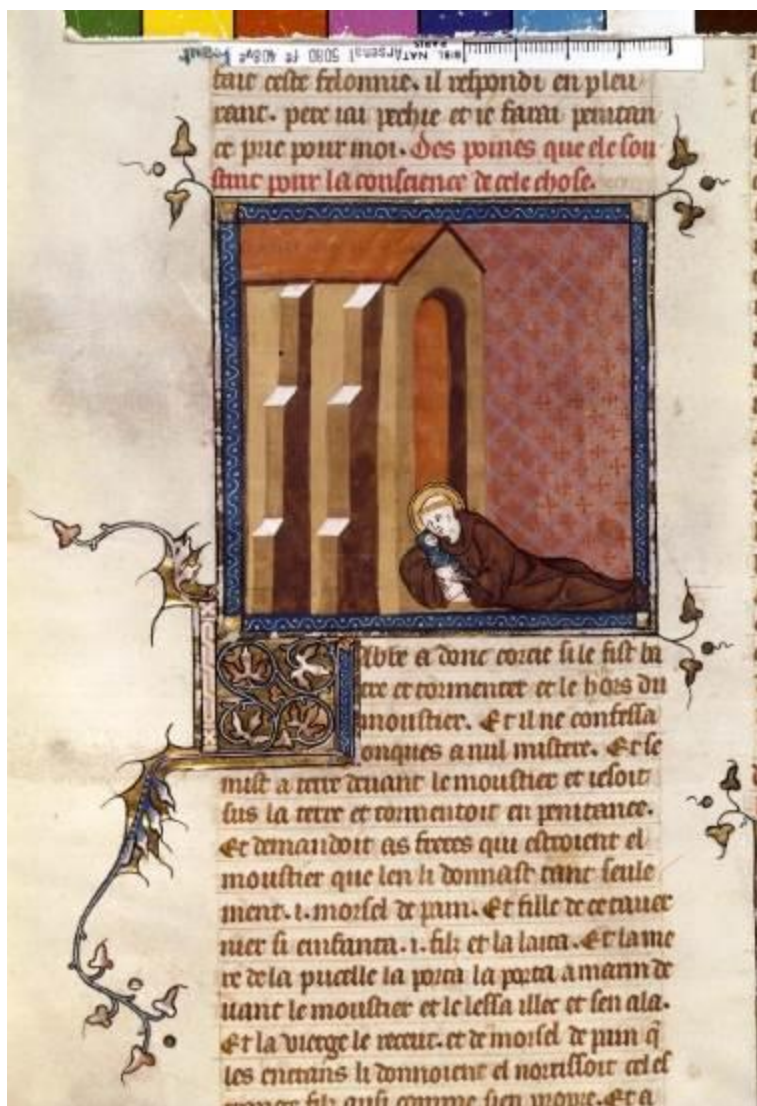 BIBL. NAT. PARIS
Arsenal 5080
faic ceste felonnie. il respondi en pleu
rant. pere iai pechie et ie farai penitan
ce prie pour moi. Des poines que ele sou
stint pour la conscience de cele chose.
Abbe a donc corcie si le fist ba
tre et tormenter et le hors du
moustier. Et il ne confessa
onques a nul mistere. Et se
mist a terre deuant le moustier et iesoit
sus la terre et tormentoit en penitance.
Et demandoit as freres qui estroient el
moustier que len li donnast tant seule
ment .i. morsel de pain. Et fille de ce tauer
nier si enfanta .i. filz et la laita. Et la me
re de la pucelle la porta la porta a marin de
uant le moustier et le lessa illec et sen ala.
Et la vierge le recut. et de morsel de pain q̄
les entrans li donnoient el norrissoit cel es
filz ausi comme sien propre. Et a